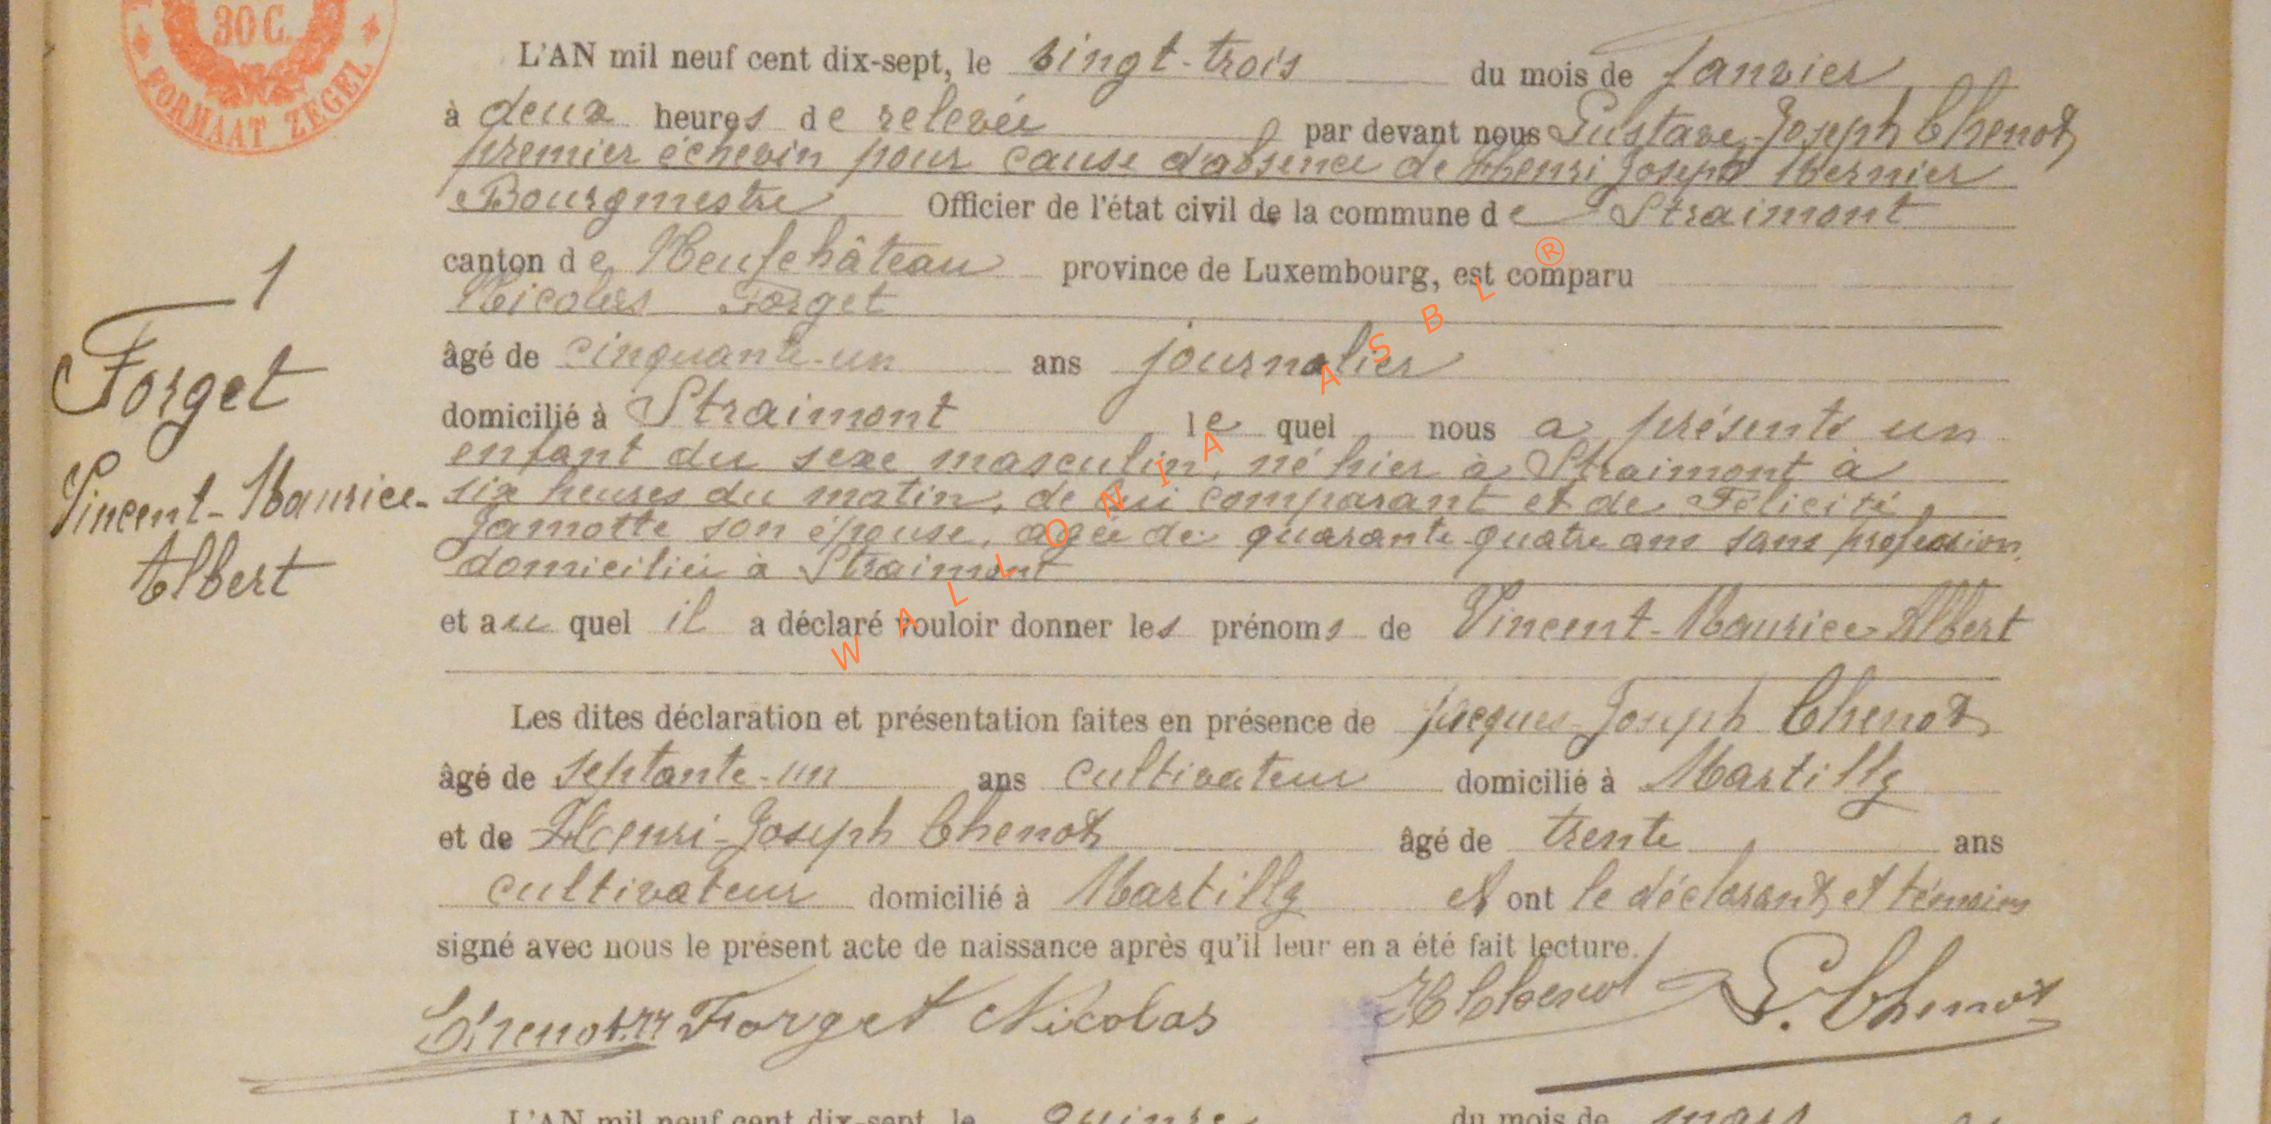 30 C.
FORMAAT ZEGEL
L'AN mil neuf cent dix-sept, le vingt-trois du mois de Janvier
à deux heures de relevée par devant nous Gustave-Joseph Chenot
premier échevin pour cause d'absence de Henri Joseph Mernier
Bourgmestre Officier de l'état civil de la commune de Straimont
canton de Neufchâteau province de Luxembourg, est comparu
Nicolas Forget
âgé de cinquante-un ans journalier
domicilié à Straimont lequel nous a présenté un
enfant du sexe masculin, né hier à Straimont à
six heures du matin, de lui comparant et de Félicité
Jamotte son épouse, agée de quarante-quatre ans sans profession,
domiciliée à Straimont
et au quel il a déclaré vouloir donner les prénoms de Vincent-Maurice-Albert
Les dites déclaration et présentation faites en présence de Jacques-Joseph Chenot
âgé de septante-un ans cultivateur domicilié à Martilly
et de Henri-Joseph Chenot âgé de trente ans
cultivateur domicilié à Martilly Et ont le déclarant et témoins
signé avec nous le présent acte de naissance après qu'il leur en a été fait lecture.
Forget Nicolas H Chenot G. Chenot
1
Forget
Vincent-Maurice-
Albert
WALLONIA ASBL ®
L'AN mil neuf cent dix-sept, le quinze du mois de mars